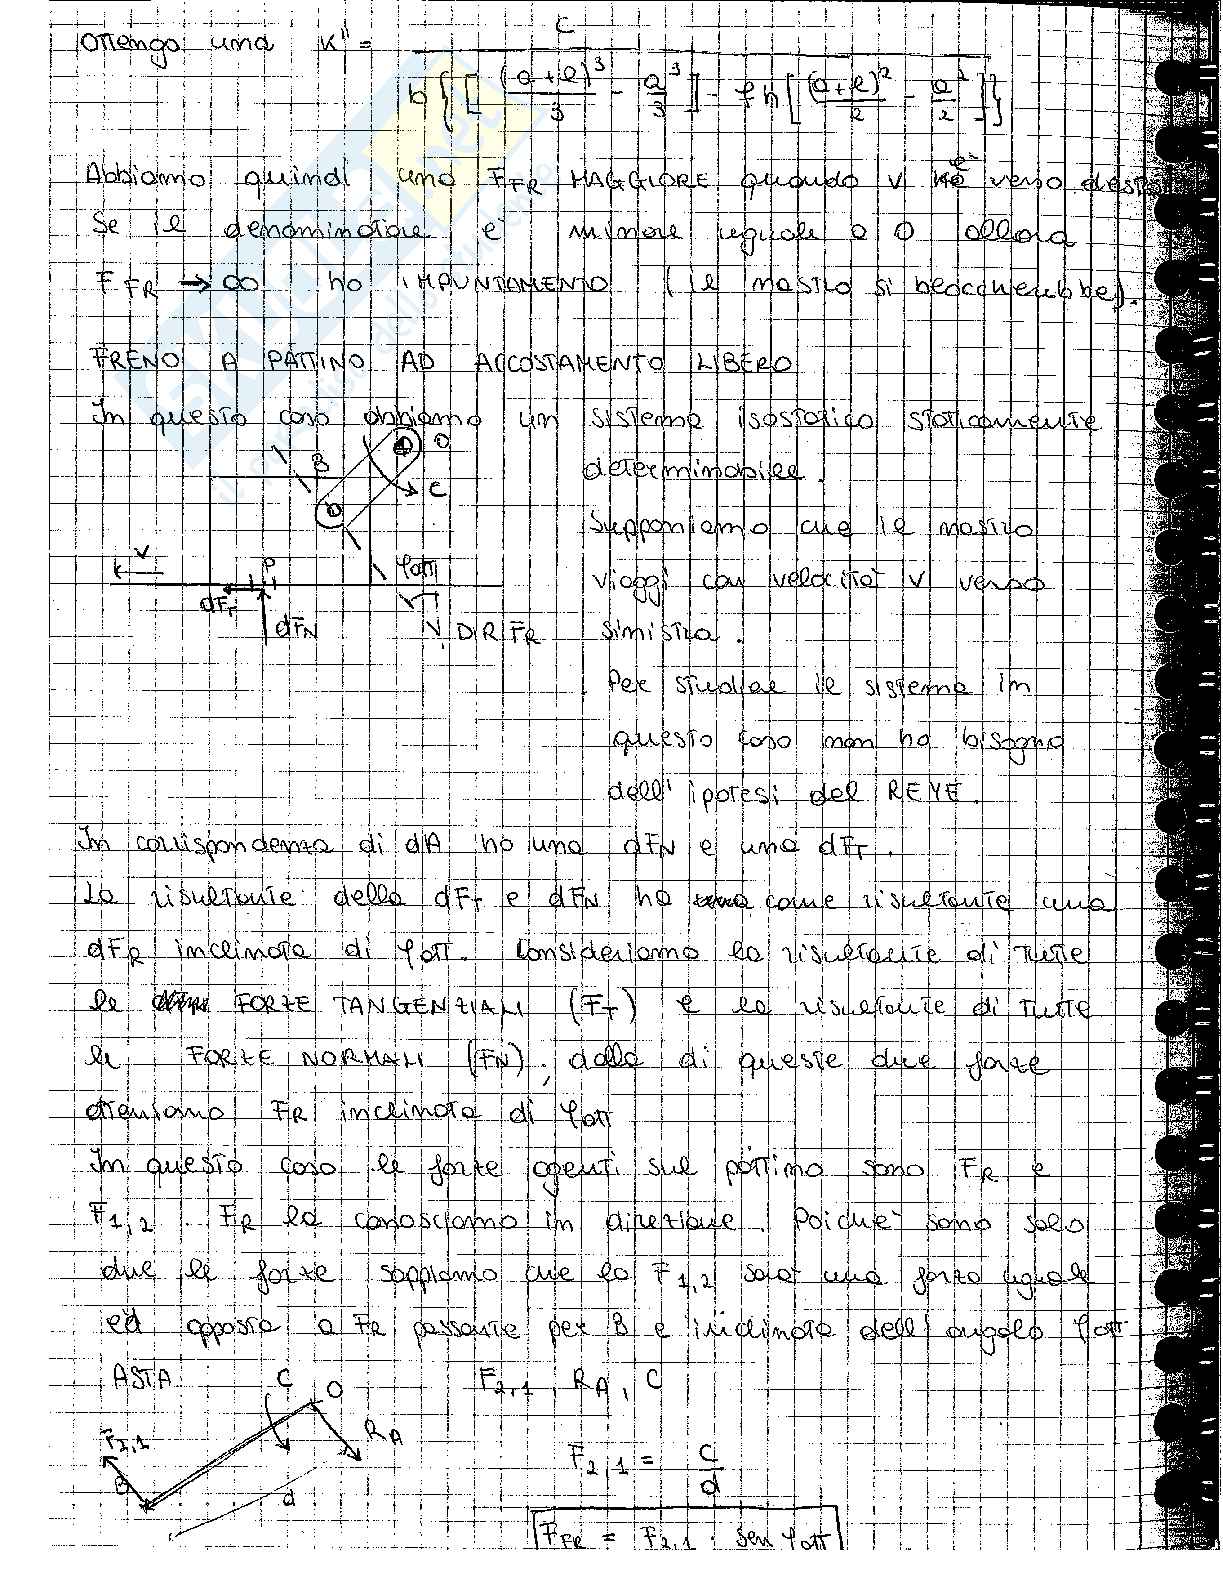 Ottengo una K'' = C / b{[(a+l)³/3 - a³/3] - fh[(a+l)²/2 - a²/2]}
Abbiamo quindi una FFR MAGGIORE quando v è verso destra
Se il denominatore è minore uguale a 0 allora
FFR → ∞ ho IMPUNTAMENTO (il nastro si bloccherebbe).
FRENO A PATTINO AD ACCOSTAMENTO LIBERO
In questo caso abbiamo un sistema isostatico staticamente
determinabile.
Supponiamo che il nastro
viaggi con velocità v verso
sinistra.
Per studiare il sistema in
questo caso non ho bisogno
dell'ipotesi del REYE.
B
O
C
v
P
φatt
dFT
dFN
DIR FR
In corrispondenza di dA ho una dFN e una dFT.
La risultante della dFT e dFN ha come risultante una
dFR inclinata di φatt. Consideriamo la risultante di tutte
le FORZE TANGENZIALI (FT) e la risultante di tutte
le FORZE NORMALI (FN), dalla di queste due forze
otteniamo FR inclinata di φatt
In questo caso le forze agenti sul pattino sono FR e
F1,2. FR la conosciamo in direzione. Poichè sono solo
due le forze sappiamo che la F1,2 sarà una forza uguale
ed opposta a FR passante per B e inclinata dell'angolo φatt
ASTA
F2,1, RA, C
C
O
F2,1
RA
d
F2,1 = C/d
FFR = F2,1 · sen φatt